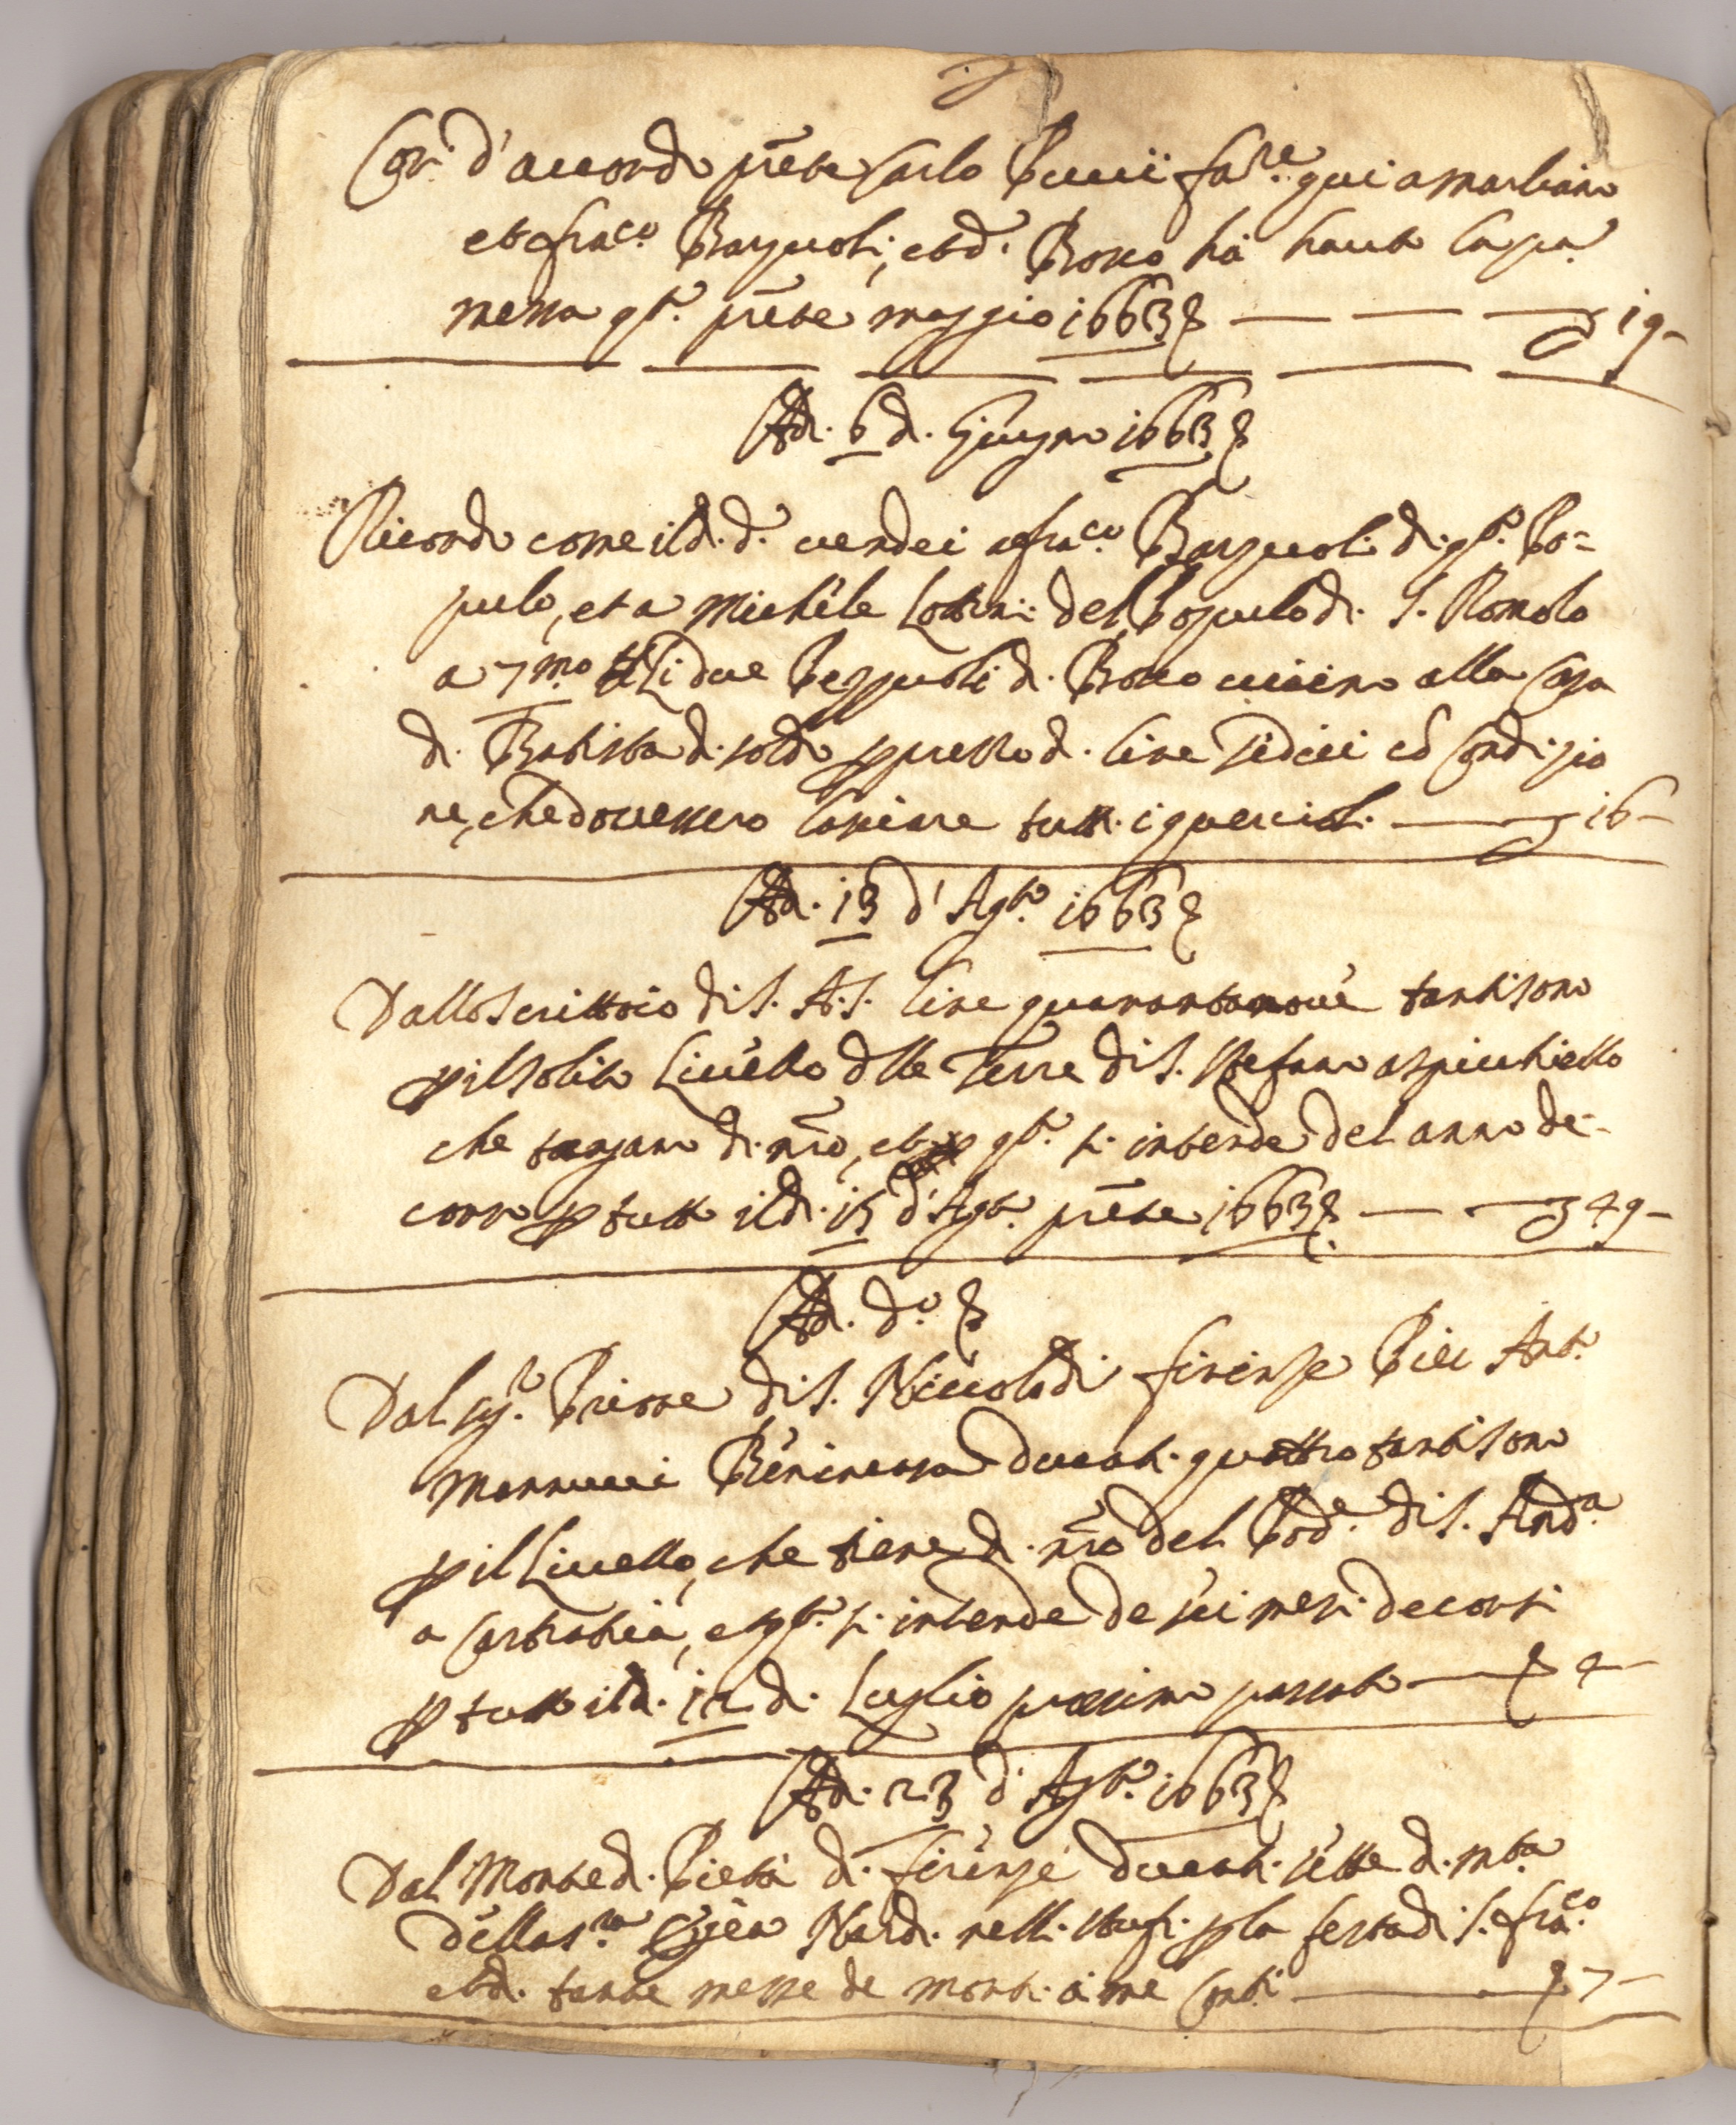 d'accordo prēte Carlo Pucci fa.re qui a Marliano
et fra.co Barzuoli; et d. Bosco hà hauto la pa
messa q.to prēte maggio 1663 — — — 19-
Adi. 6 di. Giugno 1663
Ricordo come il di. d.o vendei a fra.co Barzuoli di q.to Po=
pulo, et a Michele Lottini del Populo di. S. Romolo
a 7mo li due Pezzuoli di. Bosco vicino alla Casa
di. Batista di. Soldo p prezzo di. lire sedici cō Condizio
ne, che dovessero lasciare tutti i querciuoli. — 16-
Adi. 13 d'Ag.to 1663
Dallo Scrittoio di S. A. S. lire quarantanove tanti sono
p il solito Livello dlle Terre di S. Stefano a Spicchiello
che tengano di. nrō, et p q.to si. intende del anno de-
corso p tutto il di. 15 d'Agto. prēte 1663 — — 49-
Adi. d.o
Dal Sig.r Priore di S. Niccolo di Firenze Pier Ant.o
Mannucci Benincasa ducati. quattro tanti sono
p il Livello, che tiene di. nrō del Pod.e di S. And.a
a Carbatia, et q.to si. intende de sei mesi. decorsi
p tutto il di. 12 di. Luglio prossimo passato — 4-
Adi. 23 d'Ag.to 1663
Dal Monte di. Pietà di. Firenze ducati. sette di. mta
della S.ra Nardi. nelli. p la festa di S. fra.co
et di. tante messe de morti. à me — 7-